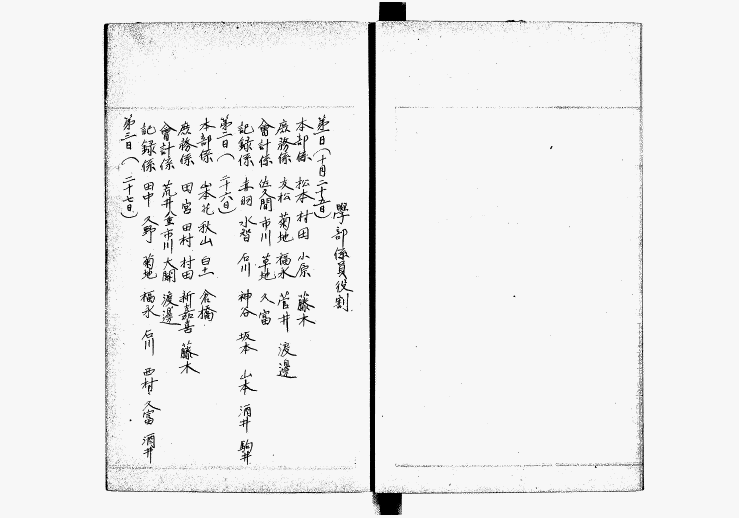 學部係員役割
第一日(十月二十五日)
本部係 松本 村田 小原 藤木
庶務係 友松 菊地 福永 菅井 渡邊
會計係 佐久間 市川 草地 久富
記録係 赤羽 水谷 石川 神谷 坂本 山本 酒井 駒井
第二日( 二十六日)
本部係 山本 花 秋山 白土 倉橋
庶務係 田宮 田村 村田 新嘉喜 藤木
會計係 荒井 八重 市川 大関 渡邊
記録係 田中 久野 菊地 福永 石川 西村 久富 酒井
第三日( 二十七日)